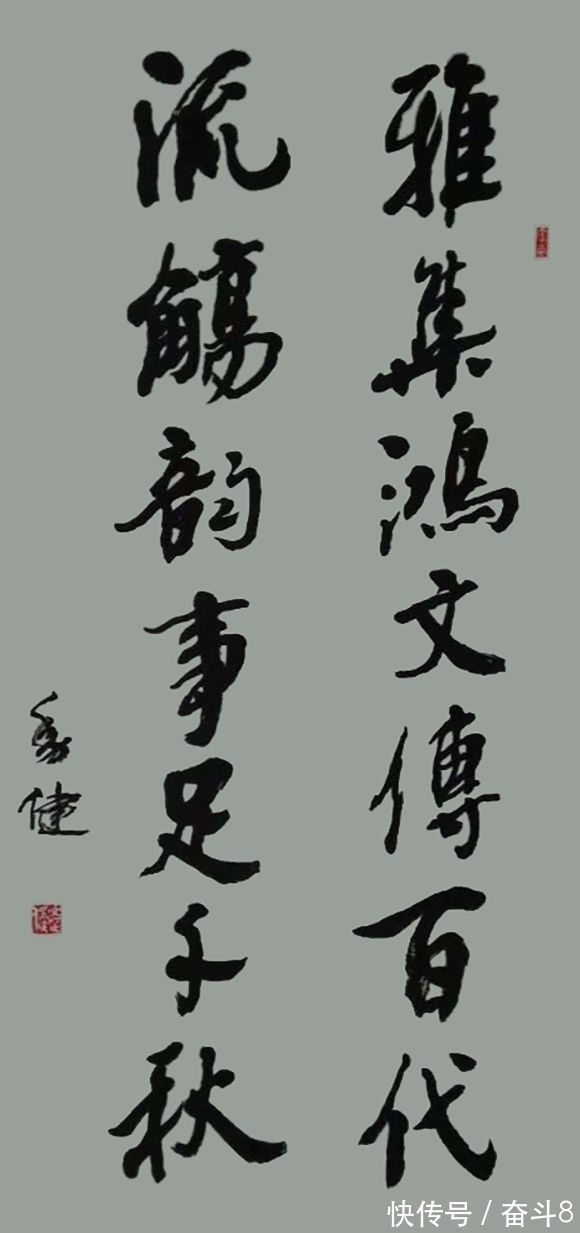 雅集鴻文傳百代
流觴韵事足千秋
快传号 / 奋斗8